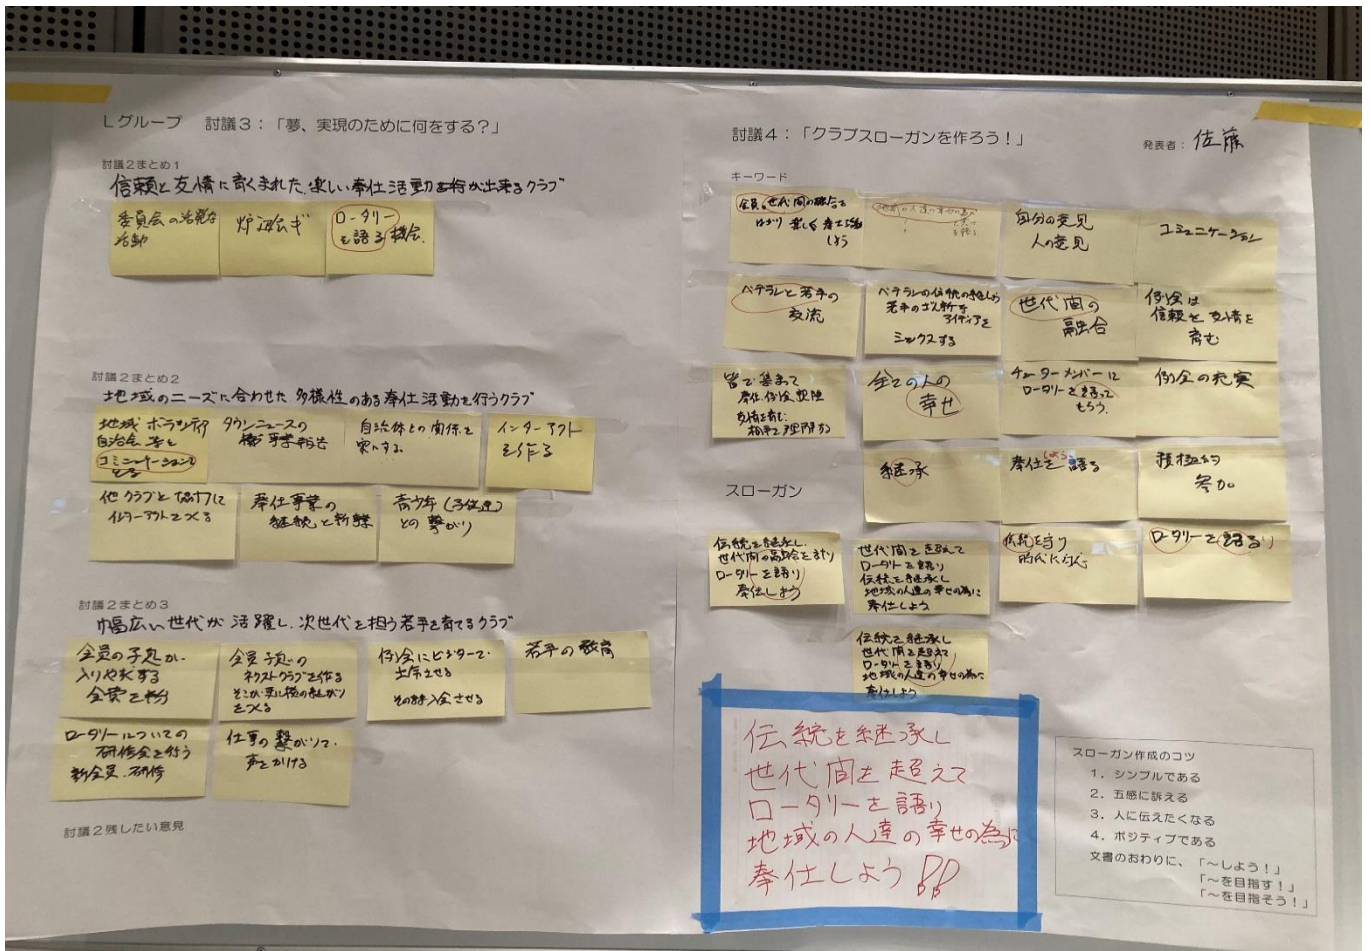 Lグループ 討議3：「夢、実現のために何をする？」
討議2まとめ1
信頼と友情に育くまれた、楽しい奉仕活動 が出来るクラブ
委員会の活発な
活動
炉辺会ギ
ロータリー
を語る機会
討議2まとめ2
地域のニーズに合わせた多様性のある奉仕活動を行うクラブ
地域ボランティア
自治会 等と
コミニュケーションを
とる
タウンニュースの
事業報告
自治体との関係を
密にする
インターアクト
を作る
他クラブと協力して
インターアクトをつくる
奉仕事業の
継続と新事業
青少年(子供達)
との繋がり
討議2まとめ3
幅広い世代が活躍し、次世代を担う若手を育てるクラブ
全員の子息が
入りやすくする
会費を
会員子息の
ネクストクラブを作る
そこが更に横の繋がり
をつくる
例会にビジターで
出席させる
そのまま入会させる
若手の教育
ロータリーについての
研修会を行う
新会員 研修
仕事の繋がりで
声をかける
討議2残したい意見
討議4：「クラブスローガンを作ろう！」
発表者： 佐藤
キーワード
世代間の融合を
はかり 楽しく 奉仕活動
しよう
地域の人達の幸せの為
自分の意見
人の意見
コミュニケーション
ベテランと若手の
交流
ベテランの伝統の継承
若手のざん新な
アイディアを
ミックスする
世代間の
融合
例会は
信頼と友情を
育む
皆で集まって
奉仕、例会
友情を育む
相手を理解する
全ての人の
幸せ
チャーターメンバーに
ロータリーを語って
もらう
例会の充実
継承
奉仕を 語る
積極的
参加
スローガン
伝統を継承し、
世代間の融合をはかり
ロータリーを語り
奉仕しよう
世代間を超えて
ロータリーを語り
伝統を継承し
地域の人達の幸せの為に
奉仕しよう
伝統を守り
時代に
ロータリーを語り
伝統を継承し
世代間を超えて
ロータリーを語り
地域の人達の幸せの為に
奉仕しよう
伝統を継承し
世代間を超えて
ロータリーを語り
地域の人達の幸せの為に
奉仕しよう!!
スローガン作成のコツ
1．シンプルである
2．五感に訴える
3．人に伝えたくなる
4．ポジティブである
文書のおわりに、「～しよう！」
「～を目指す！」
「～を目指そう！」